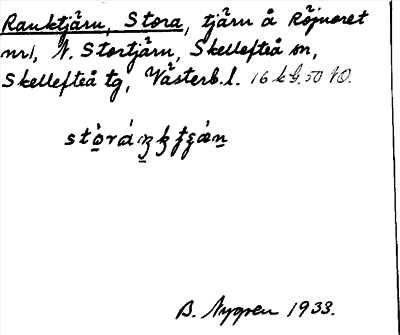 Rauktjärn, Stora, tjärn å Röjnoret
nr1, N. Stortjärn, Skellefteå sn,
Skellefteå tg, Västerb.l. 16 k G. 50 NO.
B. Nygren 1933.